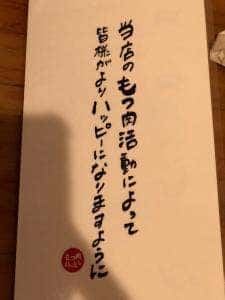 当店のもつ肉活動によって
皆様がよりハッピーになりますように